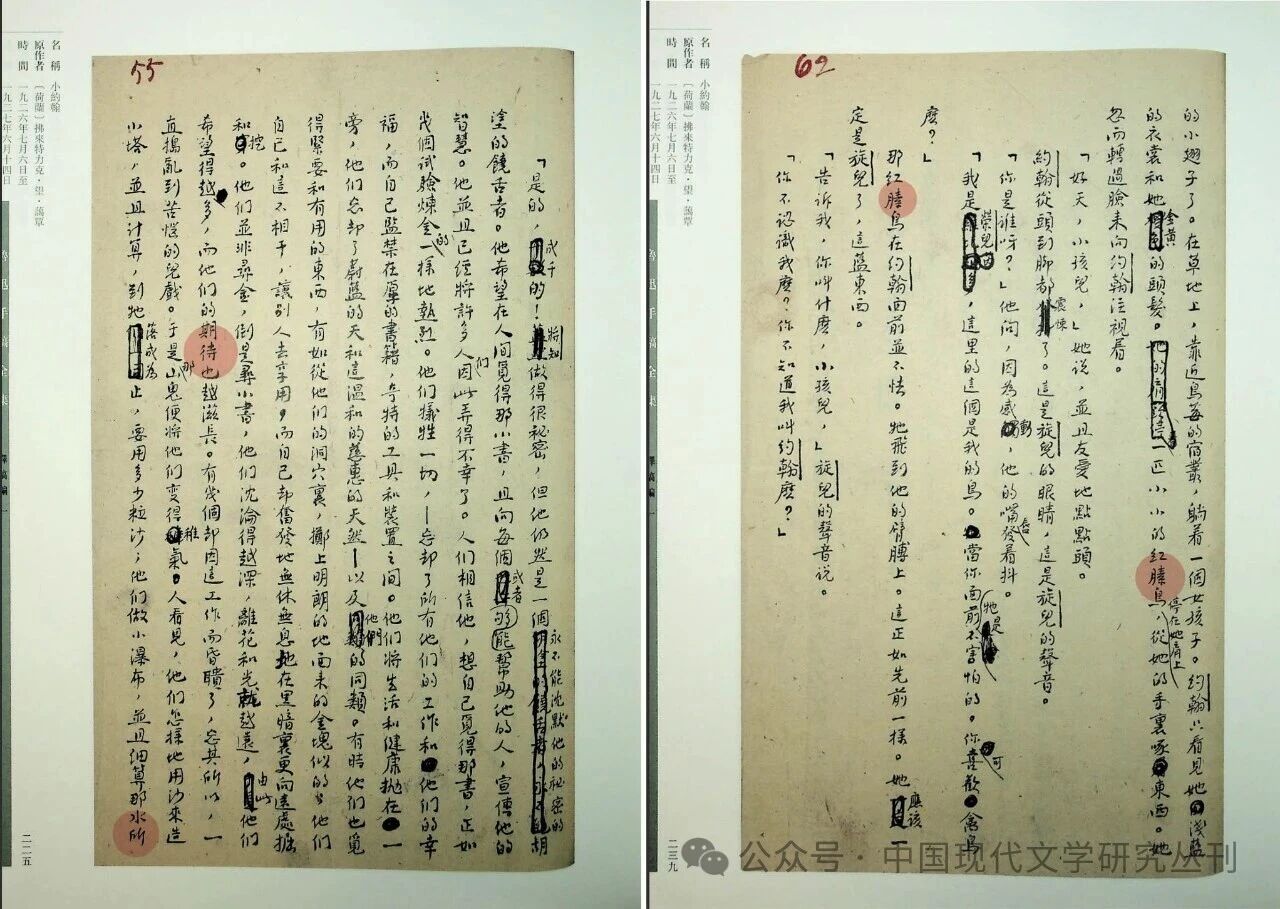 名稱 小約翰
原作者 〔荷蘭〕拂來特力克·望·藹覃
時間 一九二六年七月六日至
一九二七年六月十四日
55
「是的，成千的！將知做得很秘密，但他仍然是一個永不能沈默他的秘密的胡
塗的饒舌者。他希望在人間覓得那小書，且向每個或者能幫助他的人，宣傳他的
智慧。他並且已經將許多人們因此弄得不幸了。人們相信他，想自己覓得那書，正如
幾個試驗煉金的一樣地熱烈。他們犧牲一切，—忘却了所有他們的工作和他們的幸
福，而自己監禁在厚的書籍，奇特的工具和裝置之間。他們將生活和健康拋在一
旁，他們忘却了蔚藍的天和這溫和的慈惠的天然—以及他們的同類。有時他們也覓
得緊要和有用的東西，有如從他們的洞穴裏，擲上明朗的地面來的金塊似的；他們
自己和這不相干，讓別人去享用，而自己却奮發地無休無息地在黑暗裏更向遠處掘
和挖。他們並非尋金，倒是尋小書，他們沈淪得越深，離花和光就越遠，由此他們
希望得越多，而他們的期待也越滋長。有幾個却因這工作而昏聵了，忘其所以，一
直搗亂到苦惱的兒戲。于是那山鬼便將他們變得稚氣。人看見，他們怎樣地用沙來造
小塔，並且計算，到牠落成為止，要用多少粒沙；他們做小瀑布，並且細算那水所
二二五
名稱 小約翰
原作者 〔荷蘭〕拂來特力克·望·藹覃
時間 一九二六年七月六日至
一九二七年六月十四日
62
的小翅子了。在草地上，靠近鳥莓的宿叢，躺着一個女孩子。約翰只看見她淺藍
的衣裳和她金黃的頭髮。一匹小小的紅膆鳥，停在她肩上，從她的手裏啄東西。她
忽而轉過臉來向約翰注視着。
「好天，小孩兒，」她說，並且友愛地點點頭。
約翰從頭到脚都震悚了。這是旋兒的眼睛，這是旋兒的聲音。
「你是誰呀？」他問，因為感動，他的嘴唇發着抖。
「我是榮兒，這里的這個是我的鳥。當你面前牠是不害怕的。你可喜歡禽鳥
麼？」
那紅膆鳥在約翰面前並不怯。牠飛到他的臂膊上。這正如先前一樣。她應該一
定是旋兒了，這藍東西。
「告訴我，你叫什麼，小孩兒，」旋兒的聲音說。
「你不認識我麼？你不知道我叫約翰麼？」
二三九
公众号·中国现代文学研究丛刊